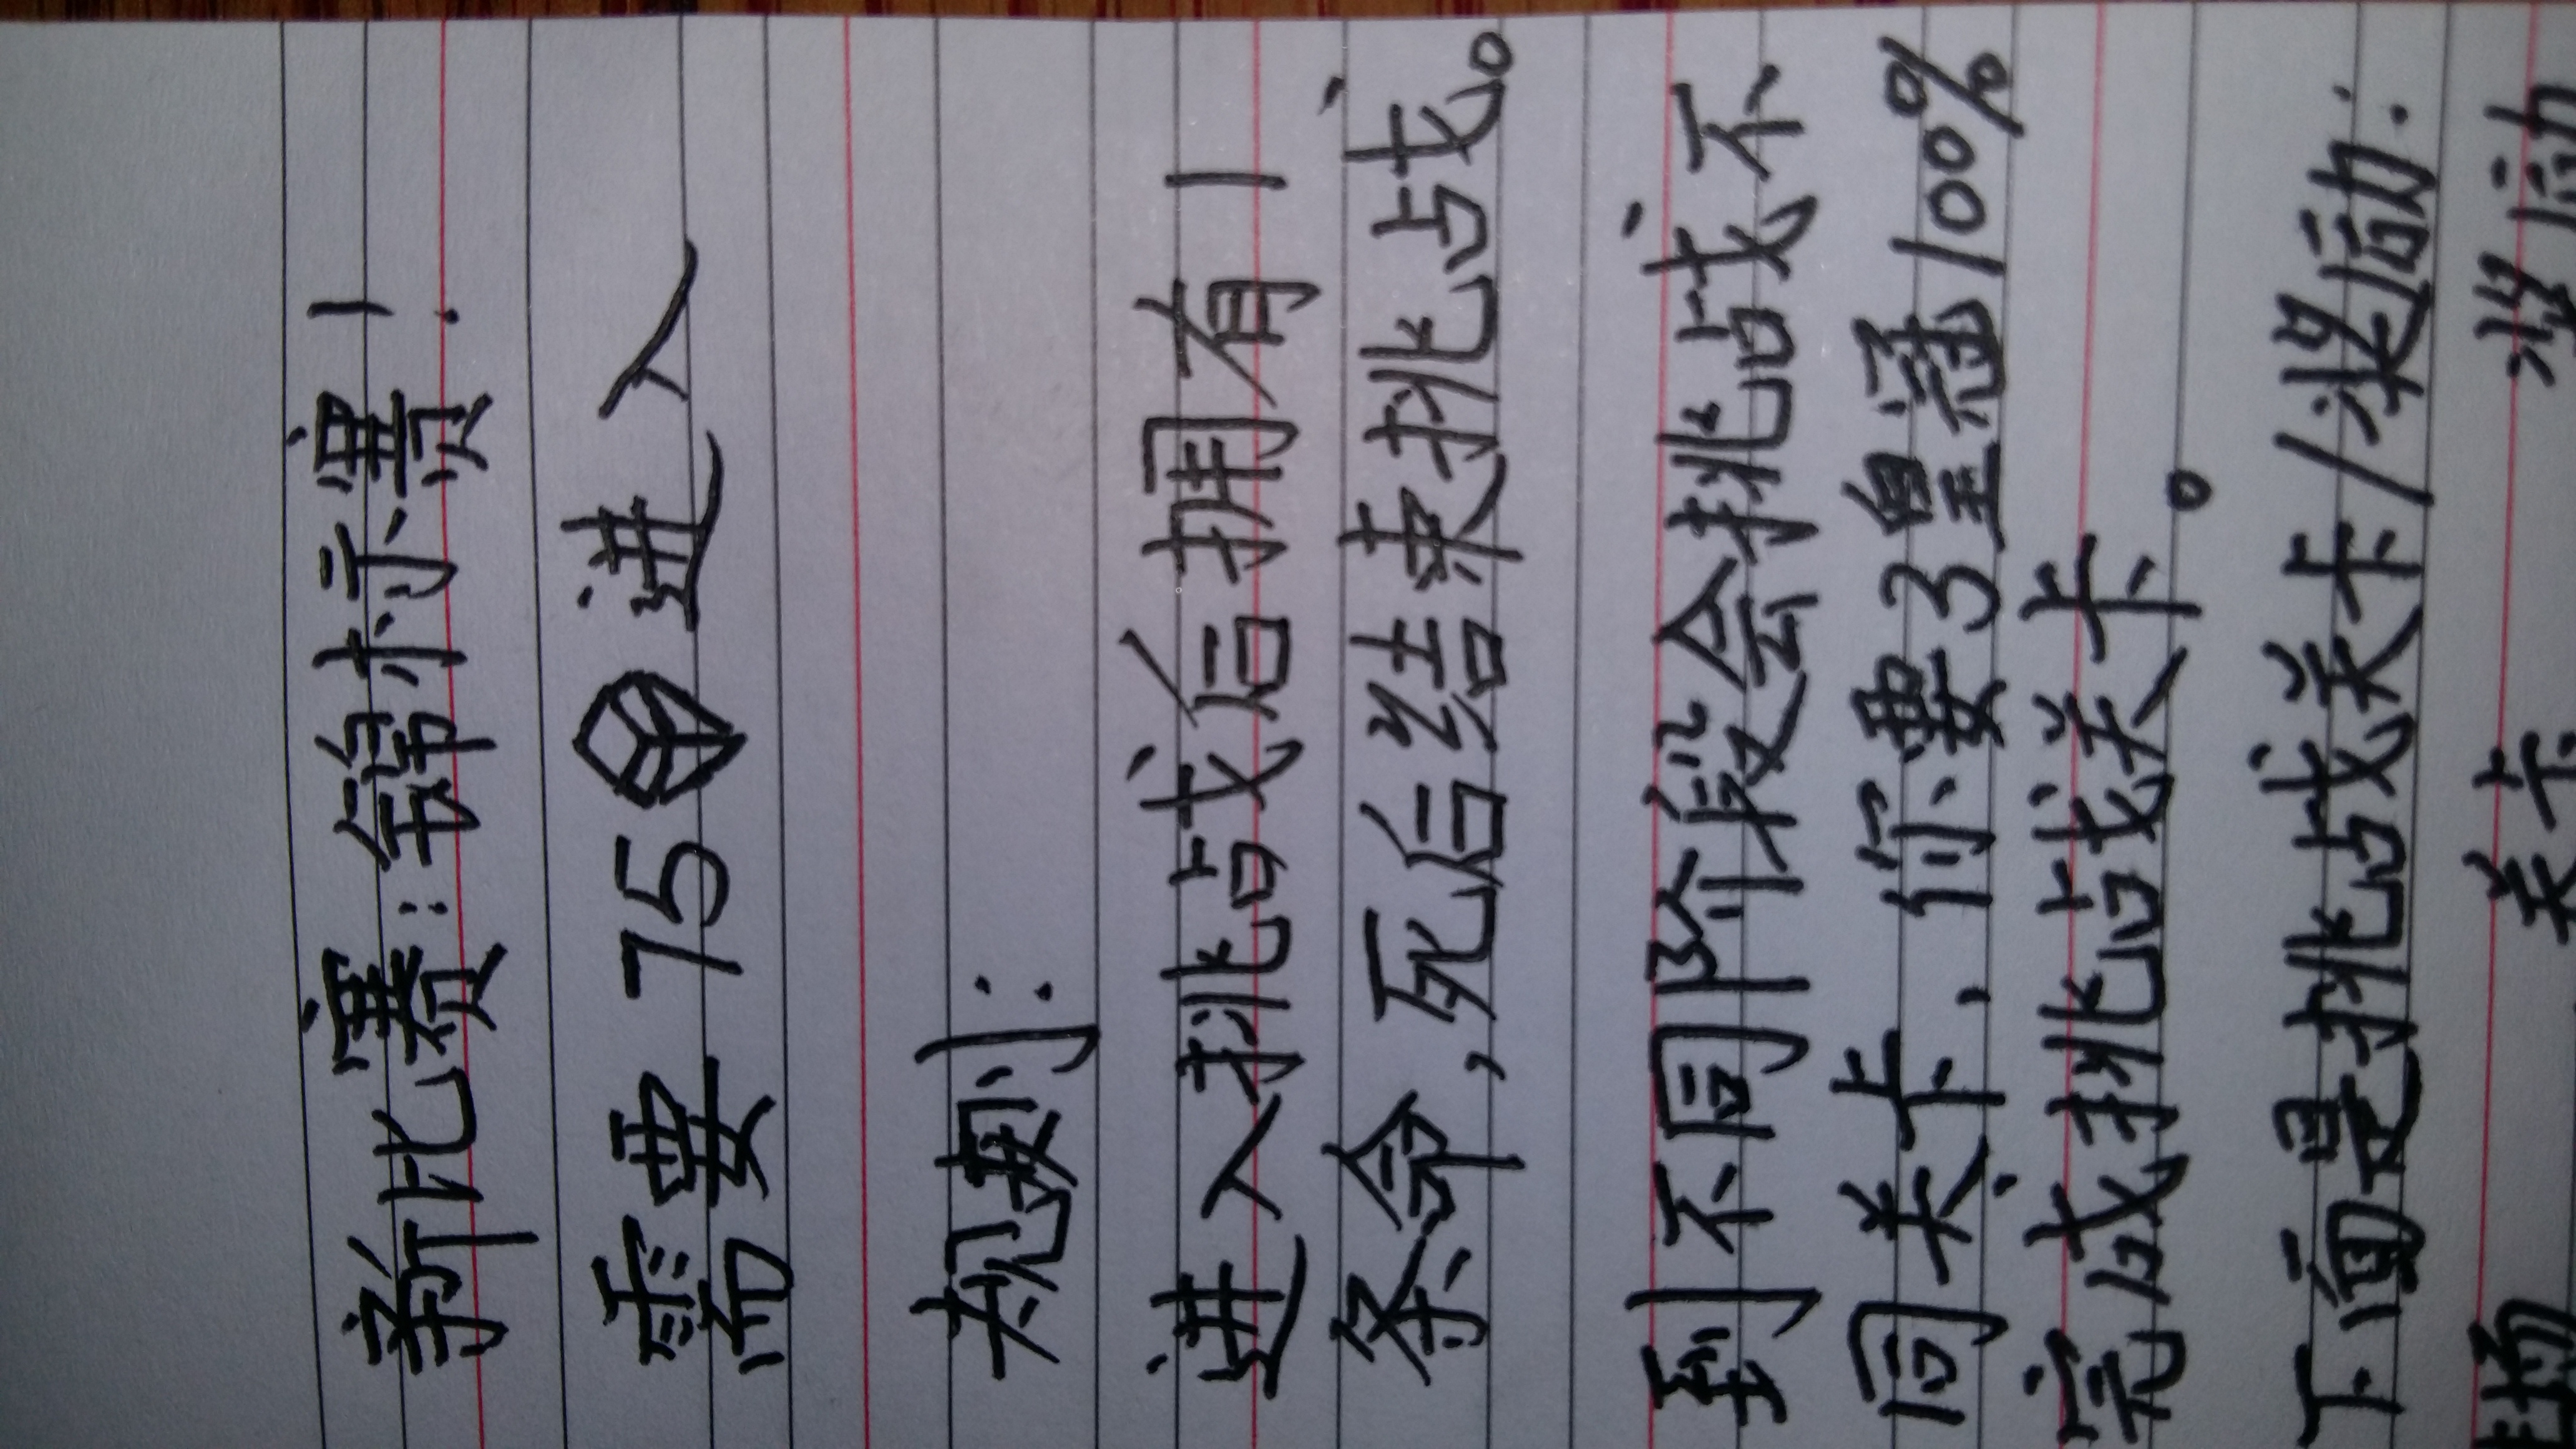 新比赛:锦标赛1.
需要75进入
规则:
进入挑战后拥有1
条命,死后结束挑战。
到不同阶段会挑战不
同关卡,你要3皇冠100%
完成挑战关卡。
下面是挑战关卡/奖励:
关卡 奖励